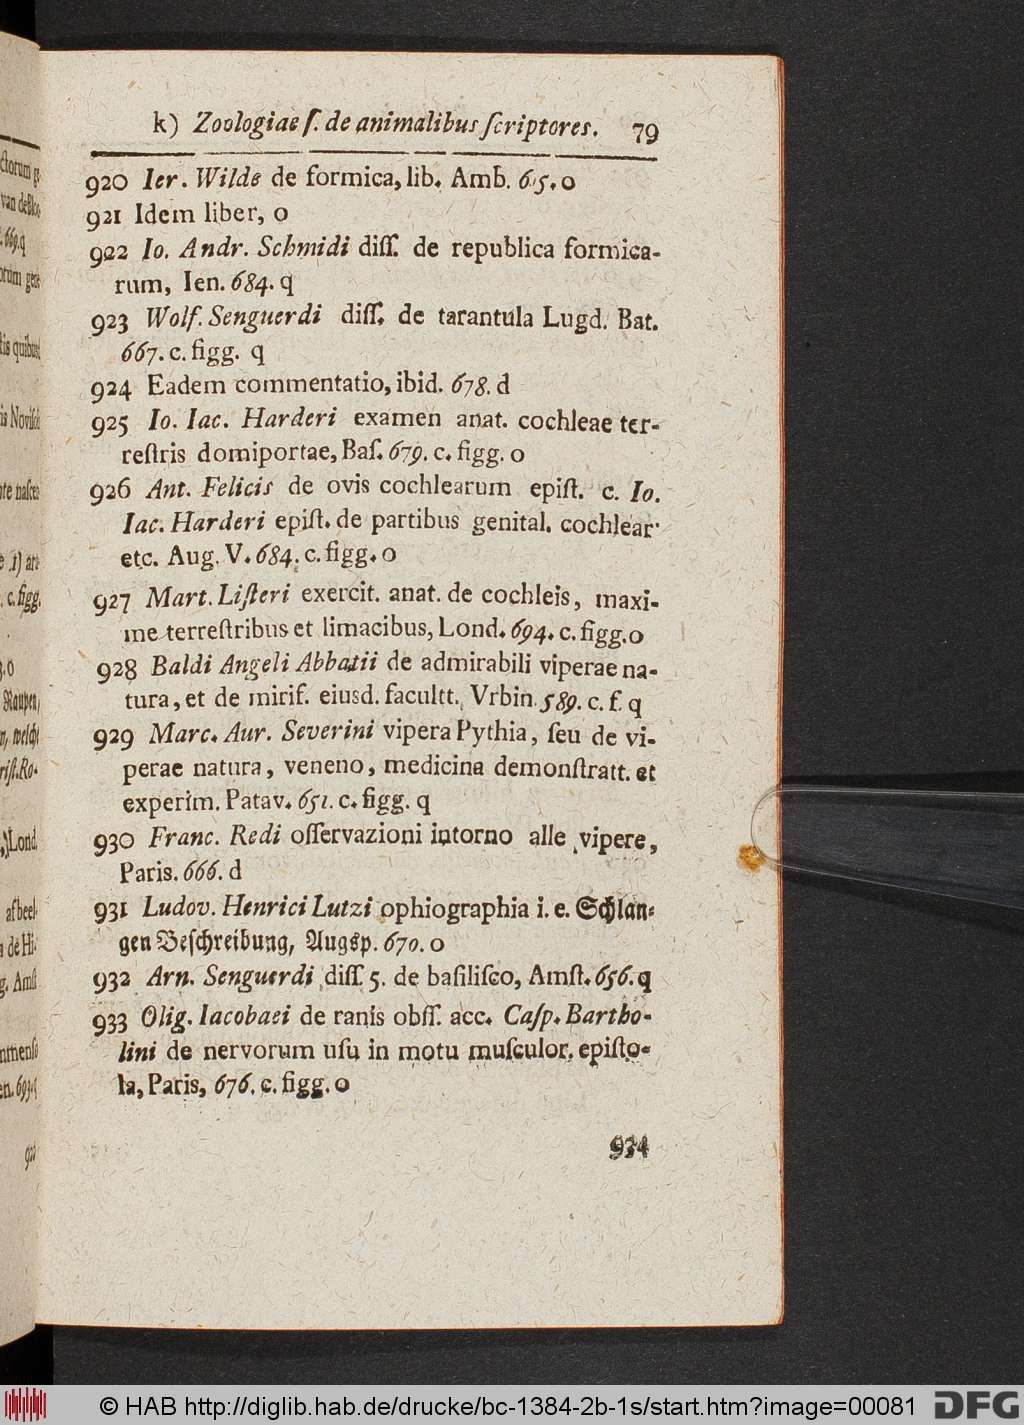 k) Zoologiae ſ. de animalibus ſcriptores. 79
920 Ier. Wilde de formica, lib. Amb. 615. o
921 Idem liber, o
922 Io. Andr. Schmidi diſſ. de republica formica-
rum, Ien. 684. q
923 Wolf. Senguerdi diſſ. de tarantula Lugd. Bat.
667. c. figg. q
924 Eadem commentatio, ibid. 678. d
925 Io. Iac. Harderi examen anat. cochleae ter-
reſtris domiportae, Baſ. 679. c. figg. o
926 Ant. Felicis de ovis cochlearum epiſt. c. Io.
Iac. Harderi epiſt. de partibus genital. cochlear.
etc. Aug. V. 684. c. figg. o
927 Mart. Liſteri exercit. anat. de cochleis, maxi-
me terreſtribus et limacibus, Lond. 694. c. figg. o
928 Baldi Angeli Abbatii de admirabili viperae na-
tura, et de mirif. eiusd. facultt. Vrbin. 589. c. f. q
929 Marc. Aur. Severini vipera Pythia, ſeu de vi-
perae natura, veneno, medicina demonſtratt. et
experim. Patav. 651. c. figg. q
930 Franc. Redi oſſervazioni intorno alle vipere,
Paris. 666. d
931 Ludov. Henrici Lutzi ophiographia i. e. Schlan-
gen Beſchreibung, Augsp. 670. o
932 Arn. Senguerdi diſſ. 5. de baſiliſco, Amſt. 656. q
933 Olig. Iacobaei de ranis obſſ. acc. Caſp. Bartho-
lini de nervorum uſu in motu muſculor. epiſto-
la, Paris, 676. c. figg. o
934
© HAB http://diglib.hab.de/drucke/bc-1384-2b-1s/start.htm?image=00081
DFG